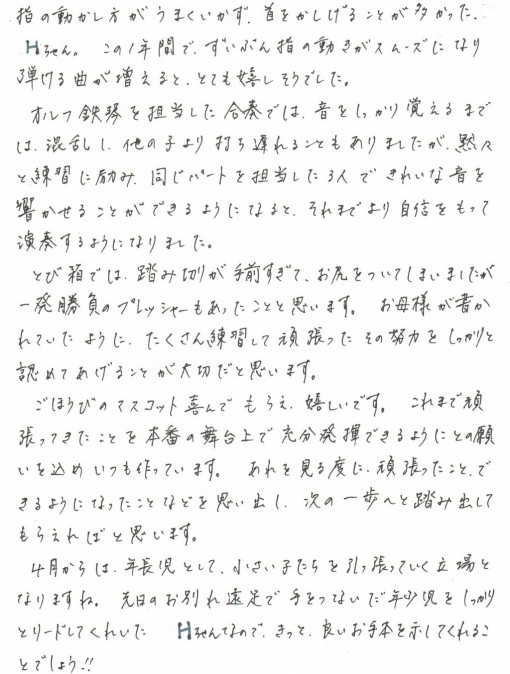 指の動かし方がうまくいかず、首をかしげることが多かった、
Hちゃん。この1年間で、ずいぶん指の動きがスムーズになり
弾ける曲が増えると、とても嬉しそうでした。
オルフ鉄琴を担当した合奏では、音をしっかり覚えるまで
は、混乱し、他の子より打ち遅れることもありましたが、黙々
と練習に励み、同じパートを担当した3人できれいな音を
響かせることができるようになると、それまでより自信をもって
演奏するようになりました。
とび箱では、踏み切りが手前すぎて、お尻をついてしまいましたが
一発勝負のプレッシャーもあったことと思います。お母様が書か
れていたように、たくさん練習して頑張ったその努力をしっかりと
認めてあげることが大切だと思います。
ごほうびのマスコット喜んでもらえ、嬉しいです。これまで頑
張ってきたことを本番の舞台上で充分発揮できるようにとの願
いを込めいつも作っています。あれを見る度に、頑張ったこと、で
きるようになったことなどを思い出し、次の一歩へと踏み出して
もらえればと思います。
4月からは、年長児として、小さい子たちを引っ張っていく立場と
なりますね。先日のお別れ遠足で手をつないだ年少児をしっかり
とリードしてくれいた Hちゃんなので、きっと、良いお手本を示してくれるこ
とでしょう!!